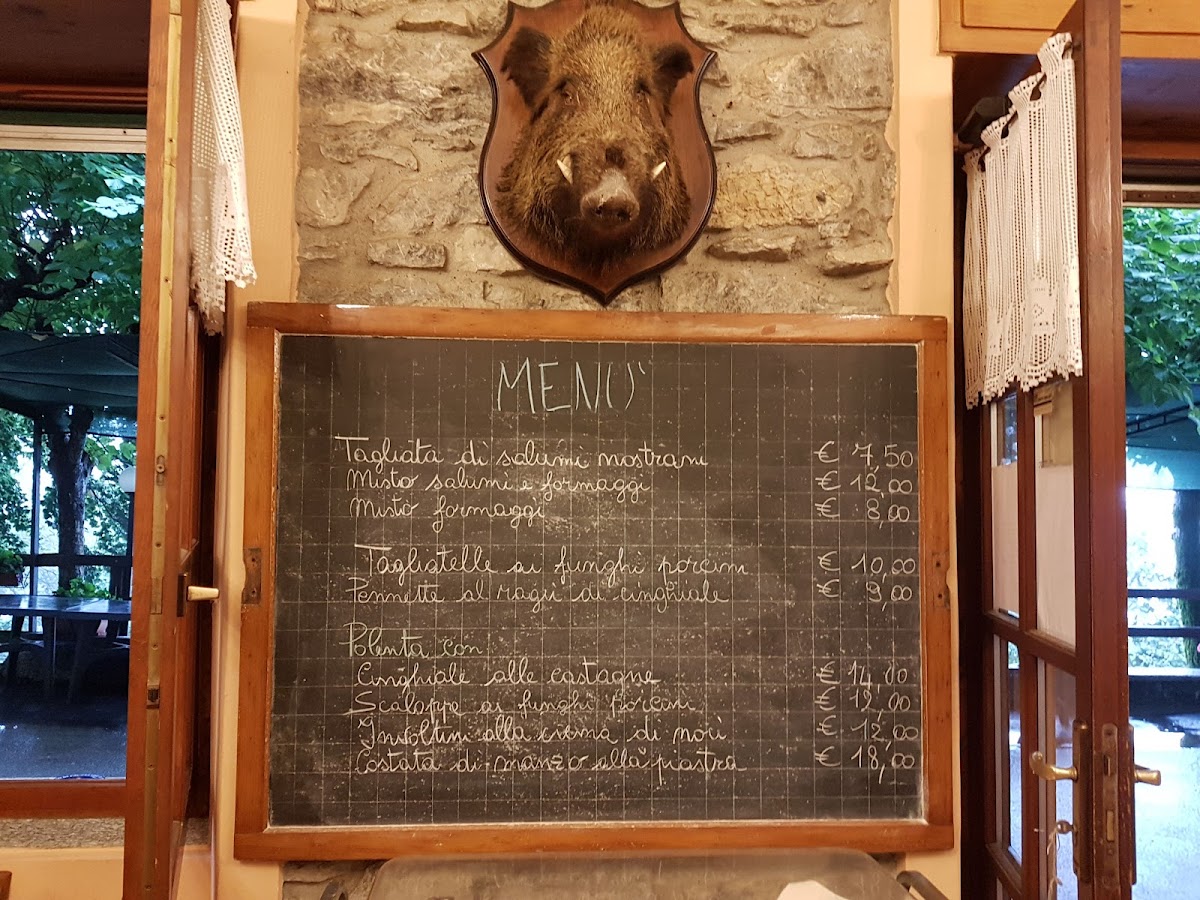 MENU'
Tagliata di salumi nostrani € 7,50
Misto salumi e formaggi € 12,00
Misto formaggi € 8,00
Tagliatelle ai funghi porcini € 10,00
Pennette al ragù di cinghiale € 9,00
Polenta con
Cinghiale alle castagne € 14,00
Scaloppe ai funghi porcini € 12,00
Involtini alla crema di noci € 12,00
Costata di manzo alla piastra € 18,00